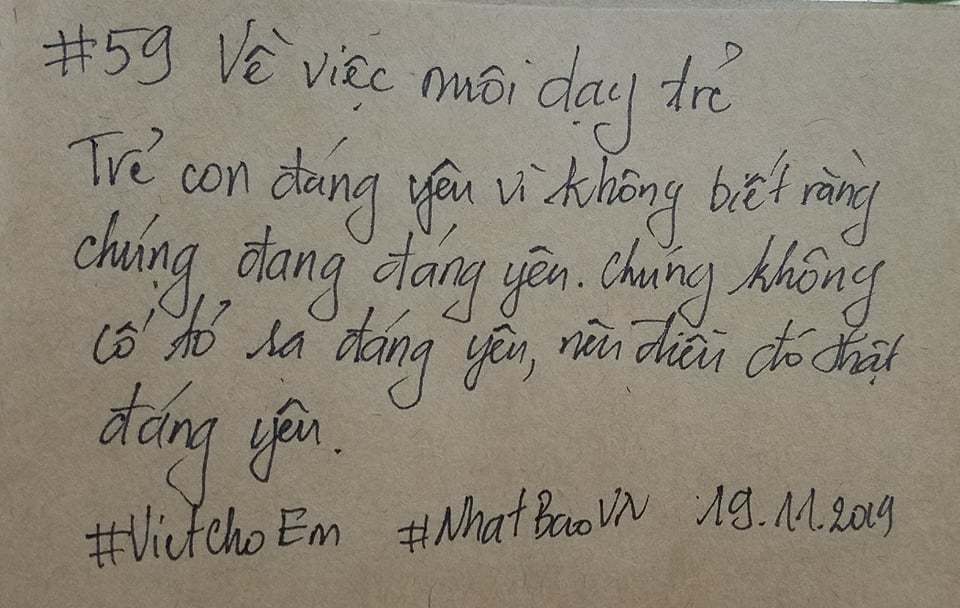 #59 Về việc nuôi dạy trẻ
Trẻ con đáng yêu vì không biết rằng
chúng đang đáng yêu. Chúng không
cố tỏ ra đáng yêu, nên điều đó thật
đáng yêu.
#VietchoEm #NhatBaoVN 19.11.2019